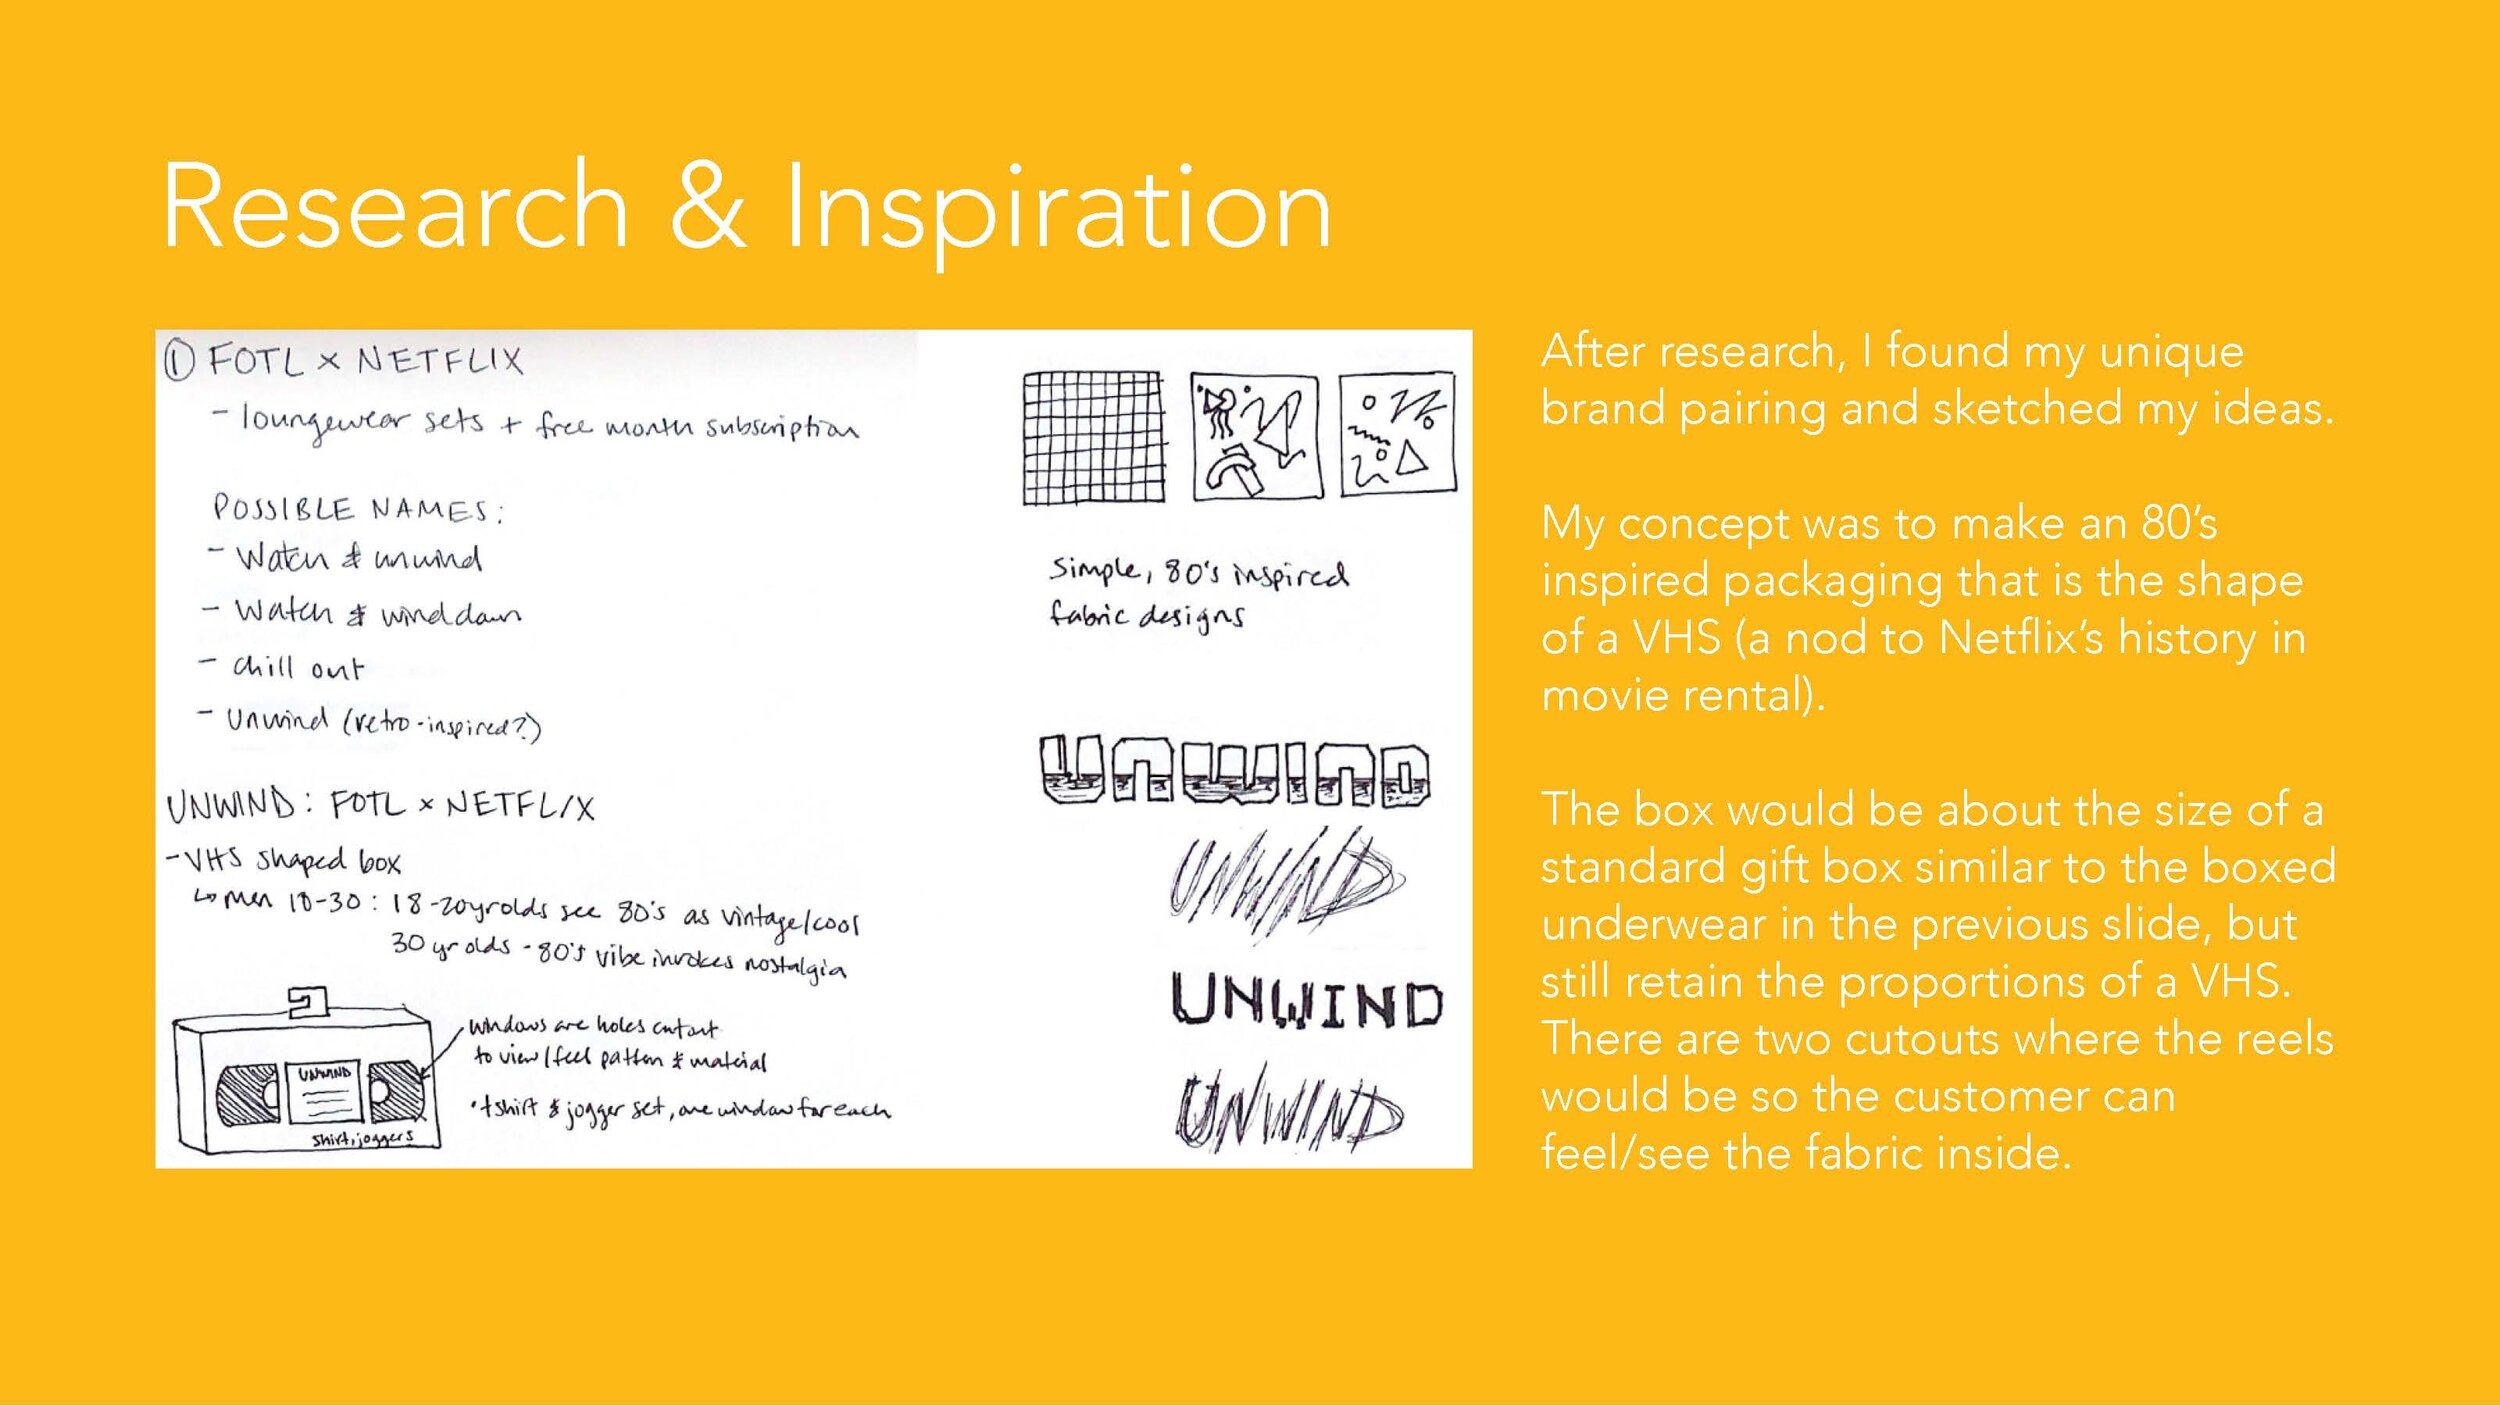 Research & Inspiration
① FOTL x NETFLIX
- loungewear sets + free month subscription
POSSIBLE NAMES:
- Watch & unwind
- Watch & wind down
- chill out
- Unwind (retro-inspired?)
UNWIND: FOTL x NETFLIX
- VHS shaped box
↳ men 18-30: 18-20yrolds see 80's as vintage/cool
30 yr olds - 80's vibe invokes nostalgia
windows are holes cutout
to view/feel pattern & material
• tshirt & jogger set, one window for each
UNWIND
shirt, joggers
Simple, 80's inspired
fabric designs
UNWIND
UNWIND
UNWIND
UNWIND
After research, I found my unique
brand pairing and sketched my ideas.
My concept was to make an 80's
inspired packaging that is the shape
of a VHS (a nod to Netflix's history in
movie rental).
The box would be about the size of a
standard gift box similar to the boxed
underwear in the previous slide, but
still retain the proportions of a VHS.
There are two cutouts where the reels
would be so the customer can
feel/see the fabric inside.